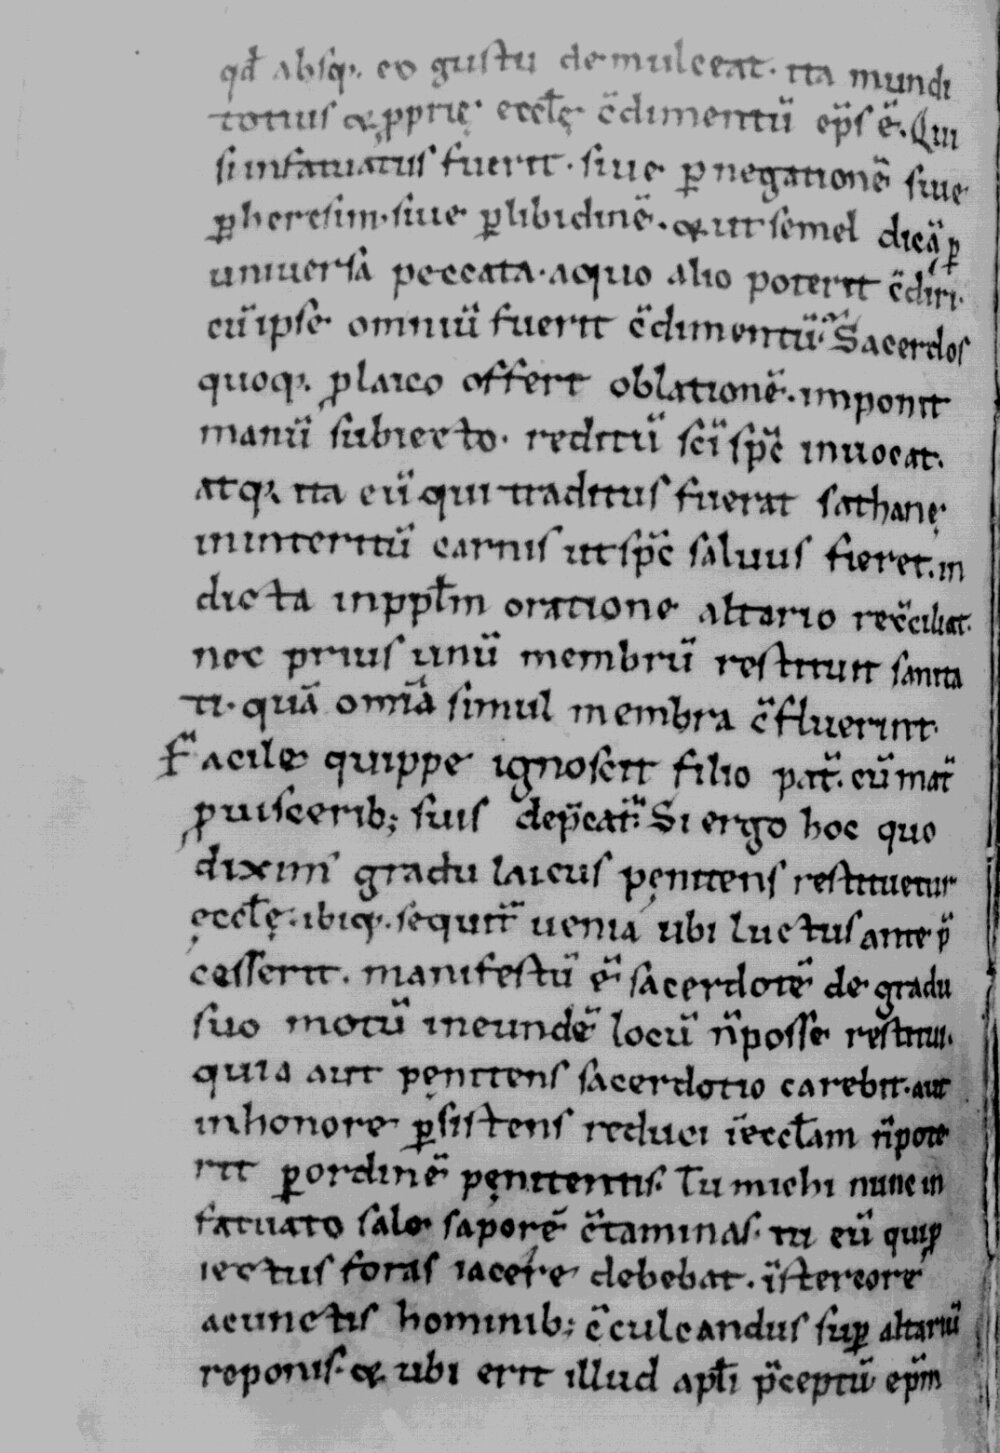 qđ absq; eo gustu demulceat. ita mundi
totius & ꝓprię eccłę c̄dimentū ep̄s ē. Qui
si infatuatus fuerit. siue ꝑ negationē siue
ꝑ heresim. siue ꝑ libidinē. & ut semel dicā ꝑ
uniuersa peccata. a quo alio poterit c̄diri.
cū ipse omniū fuerit c̄dimentū. Sacerdos
quoq; ꝓ laico offert oblationē. imponit
manū subiecto. reditū sc̄i sp̄c inuocat.
atq; ita eū qui traditus fuerat sathanę
in interitū carnis ut sp̄c saluus fieret. in
dicta in ppłm oratione altario rec̄ciliat.
nec prius unū membrū restituit sanita
ti. quā om̄ia simul membra c̄fluerint.
Facile quippe ignoscit filio pat̄. cū mat̄
ꝓ uiscerib; suis dep̄cat̄. Si ergo hoc quo
diximꝰ gradu laicus pęnitens restituetur
ęccłę. ibiq; sequit̄ uenia ubi luctus ante p̄
cesserit. manifestū ē sacerdotē de gradu
suo motū in eundē locū n̄ posse restitui.
quia aut pęnitens sacerdotio carebit. aut
in honore ꝑsistens reduci ī eccłam n̄ pote
rit ꝑ ordinē pęnitentis. Tu michi nunc in
fatuato sale saporē c̄taminas. tu eū qui ꝓ
iectus foras iacere debebat. ī stercore
a cunctis hominib; c̄culcandus suꝑ altariū
reponis. & ubi erit illud apłi p̄ceptū ep̄m